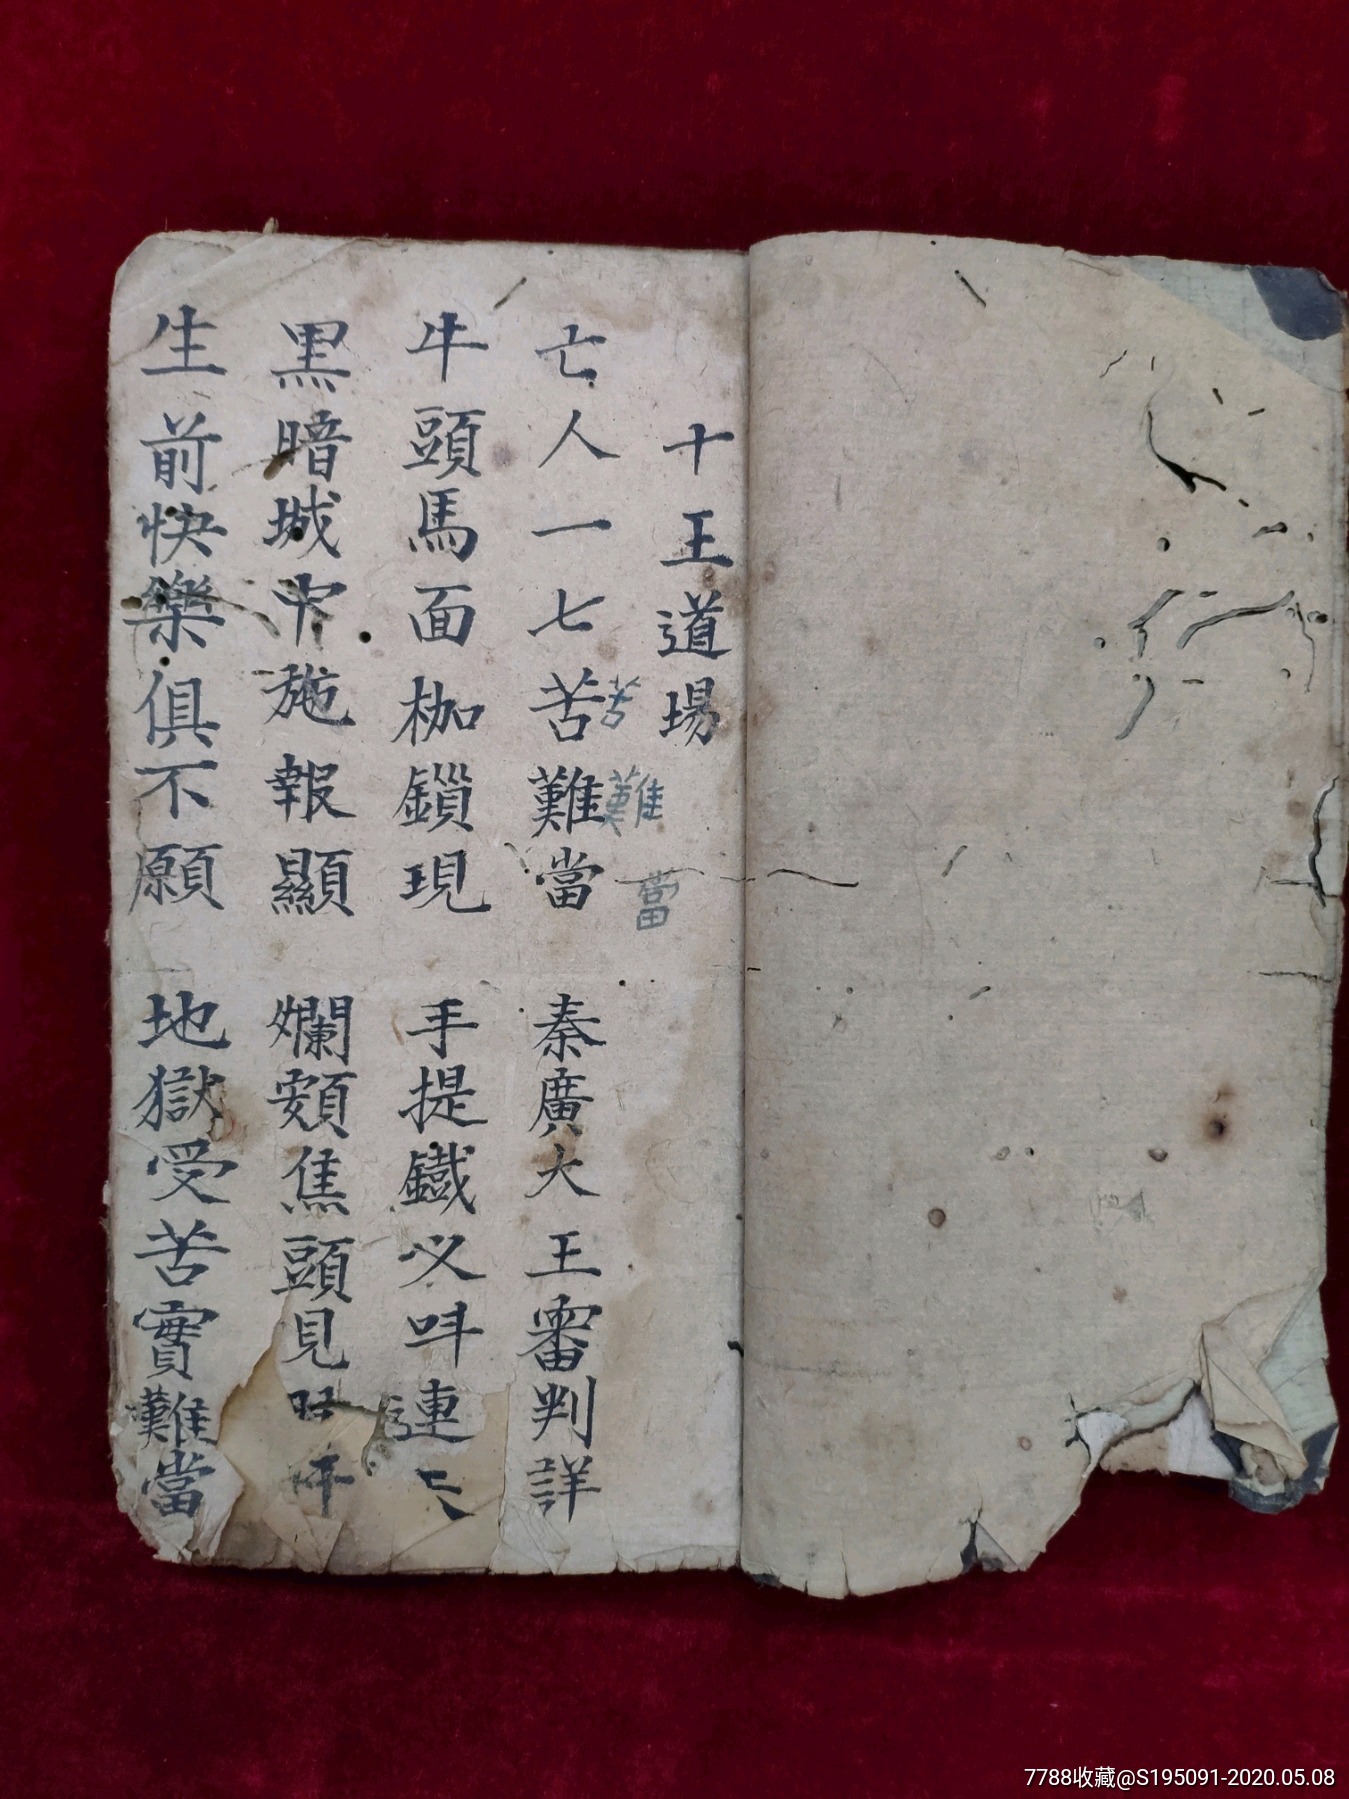 十王道場
亡人一七苦難當 秦廣大王審判詳
苦難當
牛頭馬面枷鎖現 手提鐵必呌連
黑暗城中施報顯 爛額焦頭見
生前快樂俱不願 地獄受苦實難當
7788收藏@S195091-2020.05.08